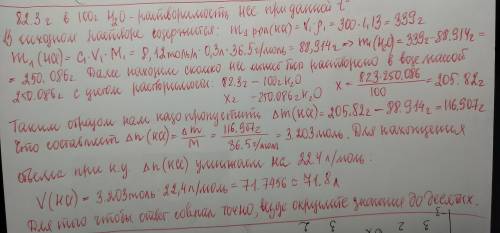 82.3 г в 100г H₂O - растворимость HCl при данной t°
В исходном растворе содержится: m₁ р-ра(HCl) = V₁·ρ₁ = 300·1,13 = 339г
m₁(HCl) = C₁·V₁·M₁ = 8,12моль/л·0,3л·36.5г/моль = 88,914г ⇒ m₁(H₂O) = 339г-88.914г =
= 250.086г. Далее находим сколько HCl может быть растворено в воде массой
250.086г с учетом растворимости: 82.3г - 100г H₂O
x₂ - 250.086г H₂O
x = 82.3·250,086 / 100 = 205.82г
Таким образом нам надо пропустить Δm(HCl) = 205.82г - 88.914г = 116,907г
Что составляет Δn(HCl) = Δm/M = 116,907г / 36.5г/моль = 3.203моль. Для нахождения
объема при н.у. Δn(HCl) умножаем на 22.4л/моль:
V(HCl) = 3.203моль·22,4л/моль = 71.7456 ≈ 71.8л
Для того чтобы ответ совпал точно, везде округлите значения до десятых.